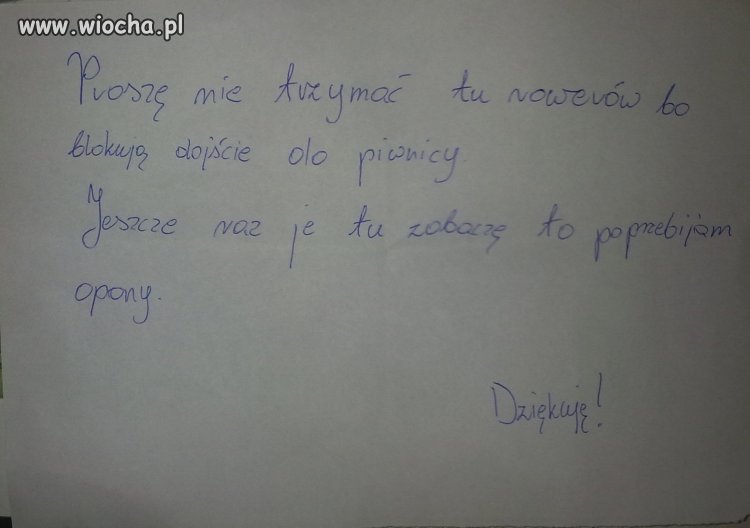 www.wiocha.pl
Proszę nie trzymać tu rowerów bo
blokują dojście do piwnicy.
Jeszcze raz je tu zobaczę to poprzebijam
opony.
Dziękuję!